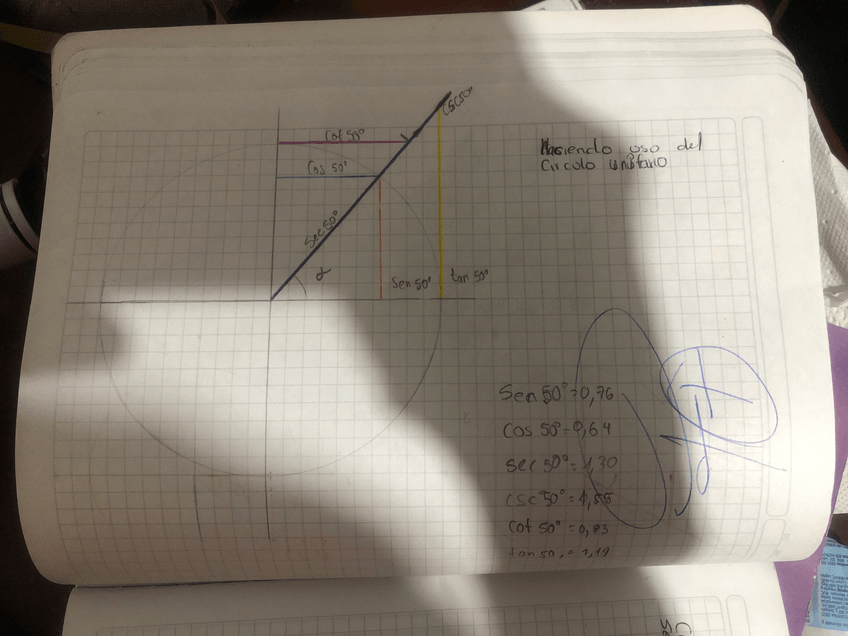 csc50°
Cot 50°
Haciendo uso del
Circulo unitario
Cos 50°
Sec 50°
α
Sen 50°
tan 50°
Sen 50° = 0,76
Cos 50° = 0,64
sec 50° = 1,30
csc 50° = 1,55
cot 50° = 0,83
tan 50. = 1,19